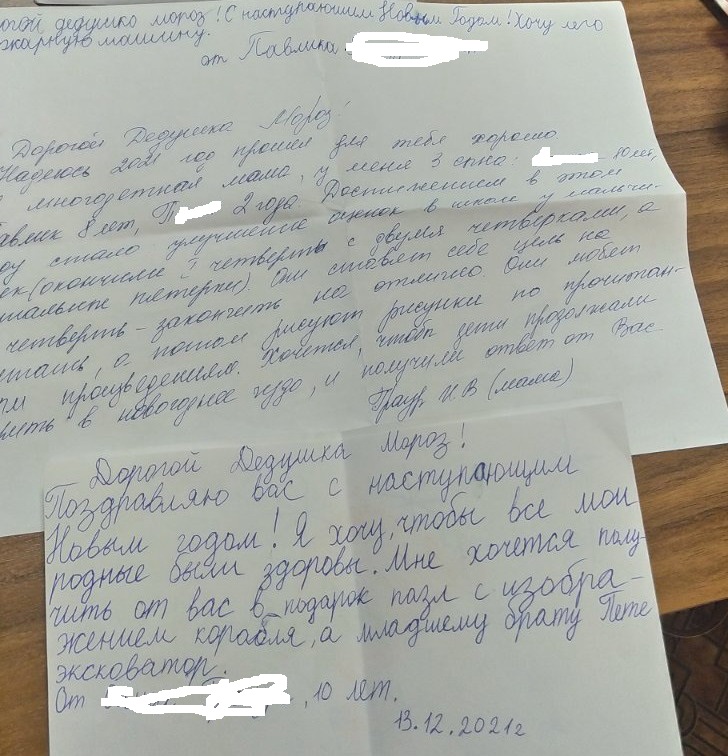 огой дедушко мороз! С наступающим Новым Годом! Хочу лего
ожарную машину.
от Павлика
Дорогой Дедушка Мороз!
Надеюсь 2021 год прошел для тебя хорошо
многодетная мама, у меня 3 сына: 10 лет,
авлик 8 лет, П 2 года. Достижением в этом
оду стало улучшение оценок в школе у мальчи-
ек (окончили I четверть с двумя четверками, а
тальные пятерки). Они ставят себе цель на
четверть - закончить на отлично. Они любят
итать, а потом рисуют рисунки по прочитан-
ым произведениям. Хочется, чтобы дети продолжали
рить в новогоднее чудо, и получили ответ от Вас
Граур И В (мама)
Дорогой Дедушка Мороз!
Поздравляю вас с наступающим
Новым годом! Я хочу, чтобы все мои
родные были здоровы. Мне хочется полу-
чить от вас в подарок пазл с изобра-
жением корабля, а младшему брату Пете
эксковатор.
От , 10 лет.
13.12.2021г